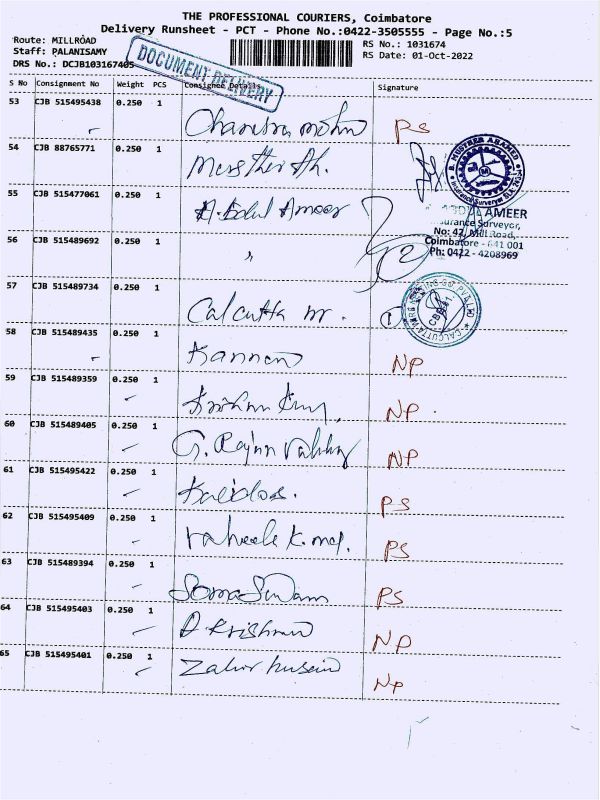 THE PROFESSIONAL COURIERS, Coimbatore
Delivery Runsheet - PCT - Phone No.:0422-3505555 - Page No.:5
Route: MILLROAD
RS No.: 1031674
Staff: PALANISAMY
RS Date: 01-Oct-2022
DRS No.: DCJB103167405
DOCUMENT DELIVERY
S No Consignment No Weight PCS Consignee Details Signature
53 CJB 515495438 0.250 1
Chandra mohn PS
54 CJB 88765771 0.250 1
B. MUSTHER AHAMED
55 CJB 515477061 0.250 1
A. Abdul Ameer
ABDUL AMEER
Insurance Surveyor,
No: 42, Mill Road,
Coimbatore - 641 001
Ph: 0422 - 4208969
56 CJB 515489692 0.250 1
" 2
57 CJB 515489734 0.250 1
Calcutta m. 1
58 CJB 515489435 0.250 1
Kannan NP
59 CJB 515489359 0.250 1
NP
60 CJB 515489405 0.250 1
G. Rajan NP
61 CJB 515495422 0.250 1
Kalidos. PS
62 CJB 515495409 0.250 1
PS
63 CJB 515489394 0.250 1
PS
64 CJB 515495403 0.250 1
D Krishnan NP
65 CJB 515495401 0.250 1
Zahir husein NP